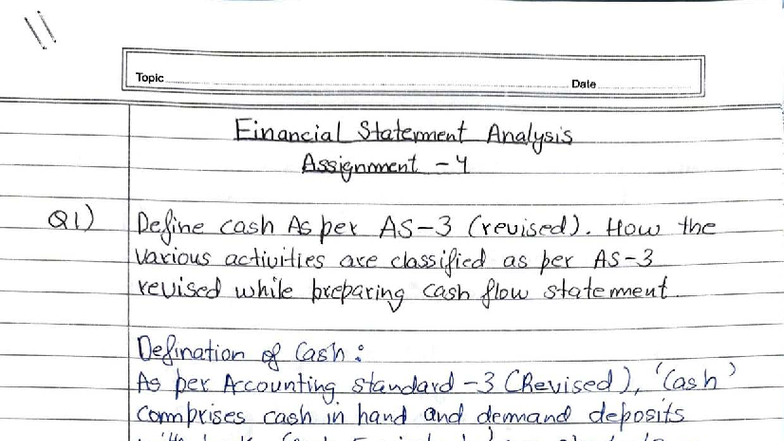 Topic
Date
Financial Statement Analysis
Assignment - 4
Q1) Define cash As per AS-3 (revised). How the
various activities are classified as per AS-3
revised while preparing cash flow statement
Defination of Cash :
As per Accounting Standard -3 (Revised), 'Cash'
comprises cash in hand and demand deposits